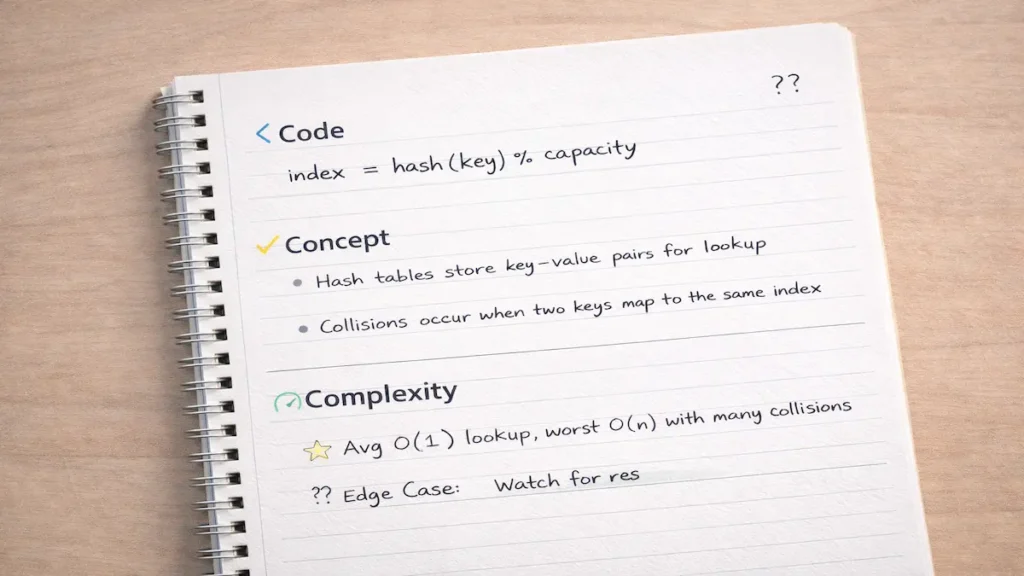 ??
Code
index = hash(key) % capacity
Concept
• Hash tables store key-value pairs for lookup
• Collisions occur when two keys map to the same index
Complexity
Avg O(1) lookup, worst O(n) with many collisions
?? Edge Case: Watch for res